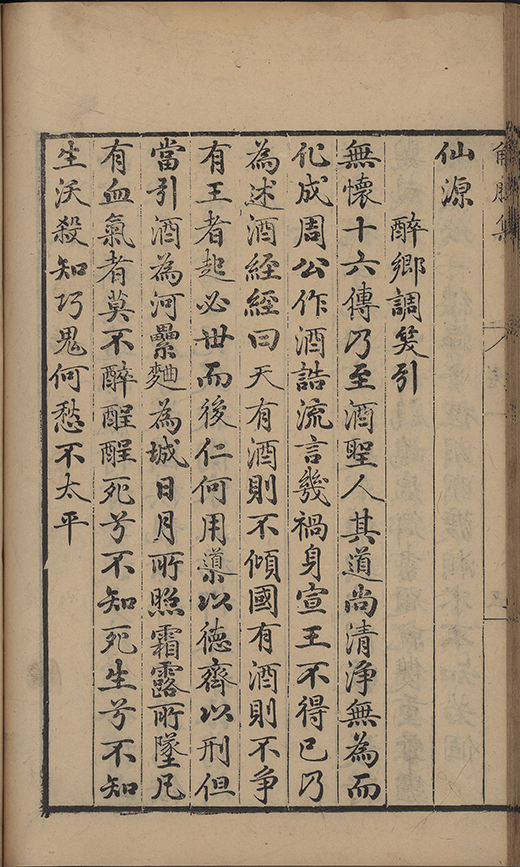 解脫集
仙源
醉鄉調笑引
無懷十六傳乃至酒聖人其道尚清淨無為而
化成周公作酒誥流言幾禍身宣王不得已乃
為述酒経経曰天有酒則不傾國有酒則不爭
有王者起必世而後仁何用導以德齊以刑但
當引酒為河壘麯為城日月所照霜露所墜凡
有血氣者莫不醉醒醒死兮不知死生兮不知
生沃殺知巧鬼何愁不太平